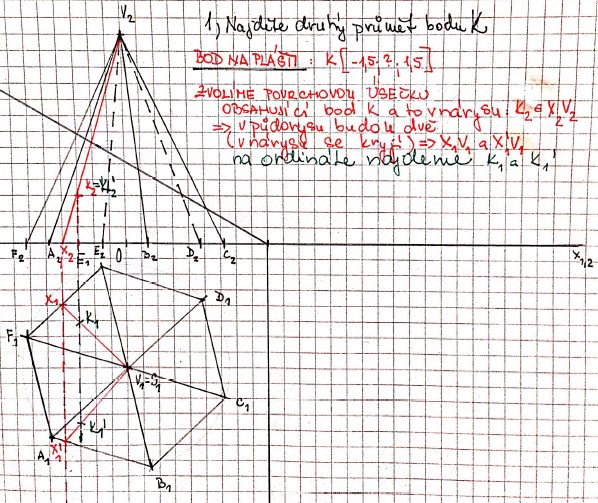 V₂
1, Najděte druhý průmět bodu K
BOD NA PLÁŠTI : K [-1,5; ?; 1,5]
ZVOLÍME POVRCHOVOU ÚSEČKU
OBSAHUJÍCÍ bod K a to v nárysu: K₂ ∈ X₂V₂
⇒ v půdorysu budou dvě
(v nárysu se kryjí) ⇒ X₁V₁ a X₁'V₁
na ordinále najdeme K₁ a K₁'
K₂=K₂'
F₂ A₂ X₂ E₁ E₂ O B₂ D₂ C₂ X₁,₂
X₁ D₁
K₁
F₁
V₁=S₁
C₁
K₁'
A₁ X₁'
B₁